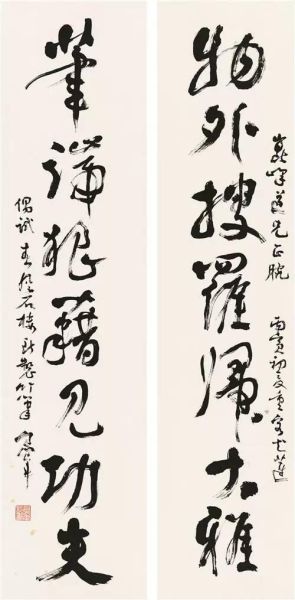 峰道兄正腕 丙寅初夏重客
物外搜羅歸大雅
筆端狼藉見功夫
偶試 石樓新製竹筆